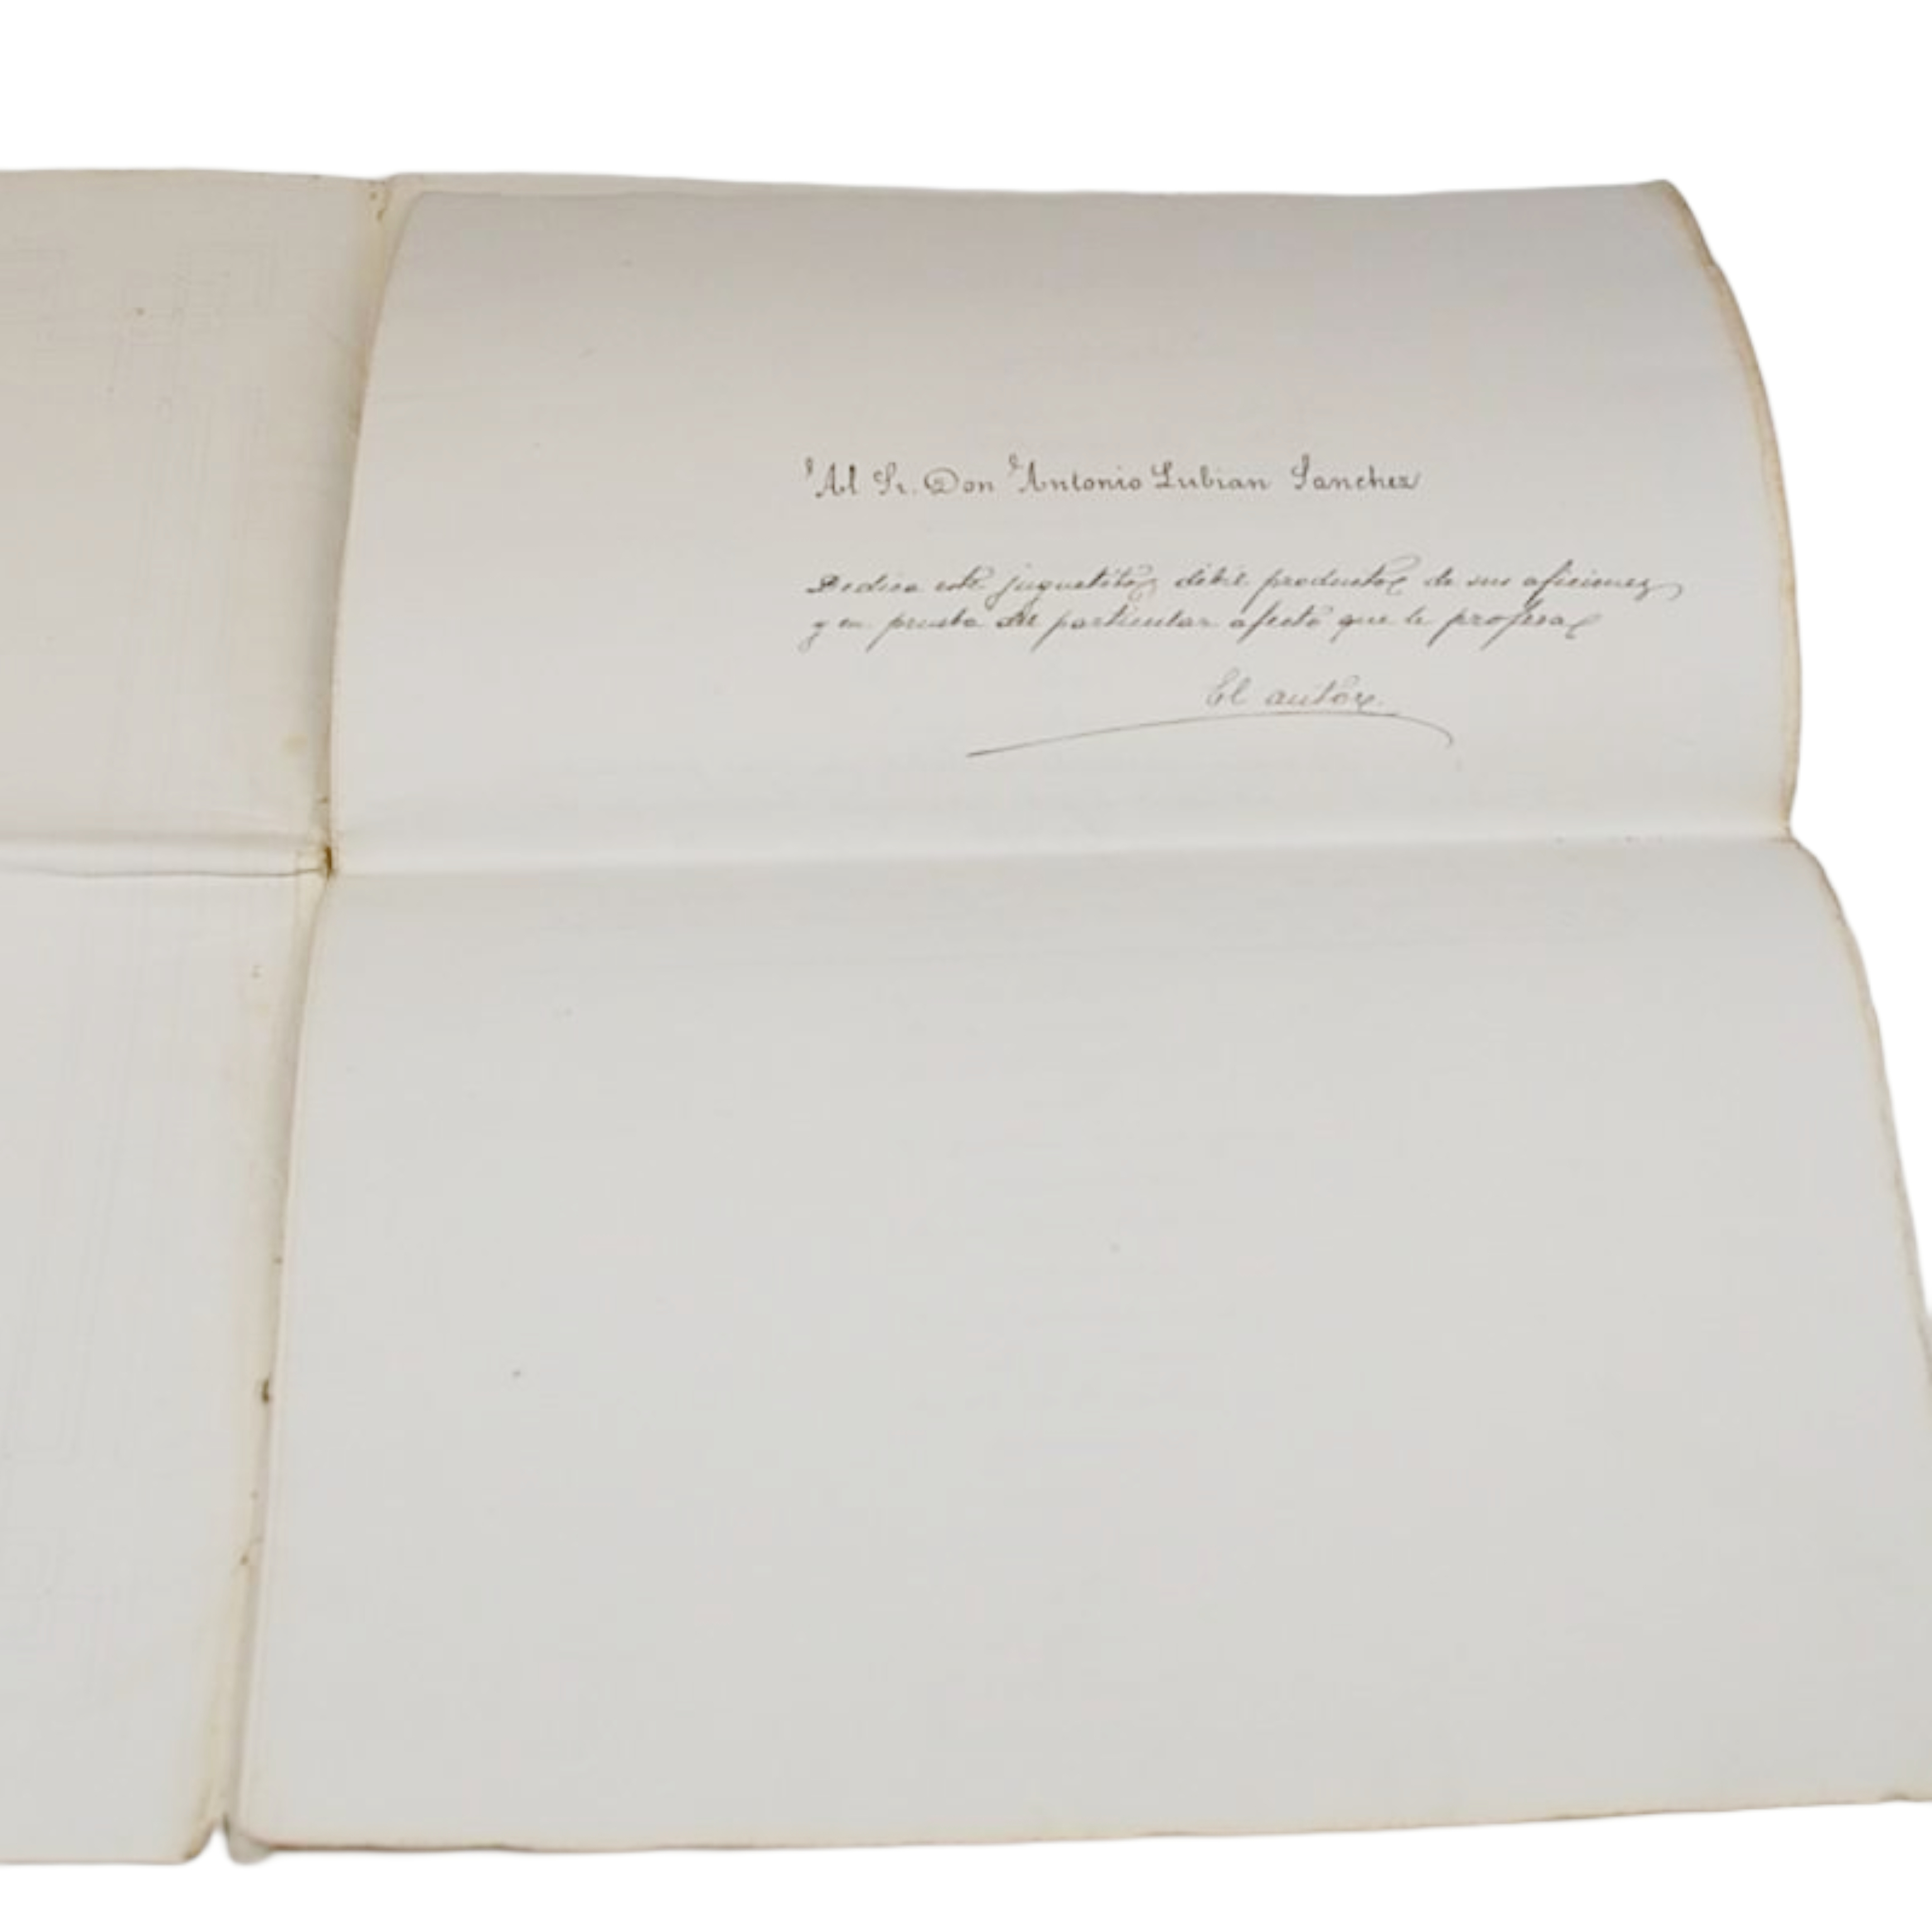 Al Sr. Don Antonio Lubian Sanchez
Dedica este juguetito, débil producto de sus aficiones
y en prueba del particular afecto que le profesa
El autor.